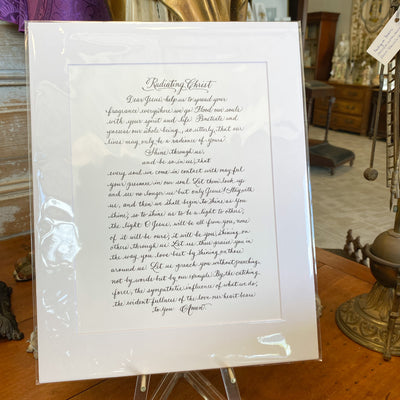 Radiating Christ
Dear Jesus, help us to spread your
fragrance everywhere we go. Flood our souls
with your spirit and life. Penetrate and
possess our whole being, so utterly, that our
lives may only be a radiance of yours.
Shine through us,
and be so in us, that
every soul we come in contact with may feel
your presence in our soul. Let them look up
and see no longer us but only Jesus! Stay with
us, and then we shall begin to shine as you
shine; so to shine as to be a light to others;
the light O Jesus, will be all from you, none
of it will be ours; it will be you, shining on
others through us. Let us thus praise you in
the way you love best by shining on those
around us. Let us preach you without preaching,
not by words but by our example. By the catching
force, the sympathetic influence of what we do;
the evident fullness of the love our heart bears
to you. Amen.